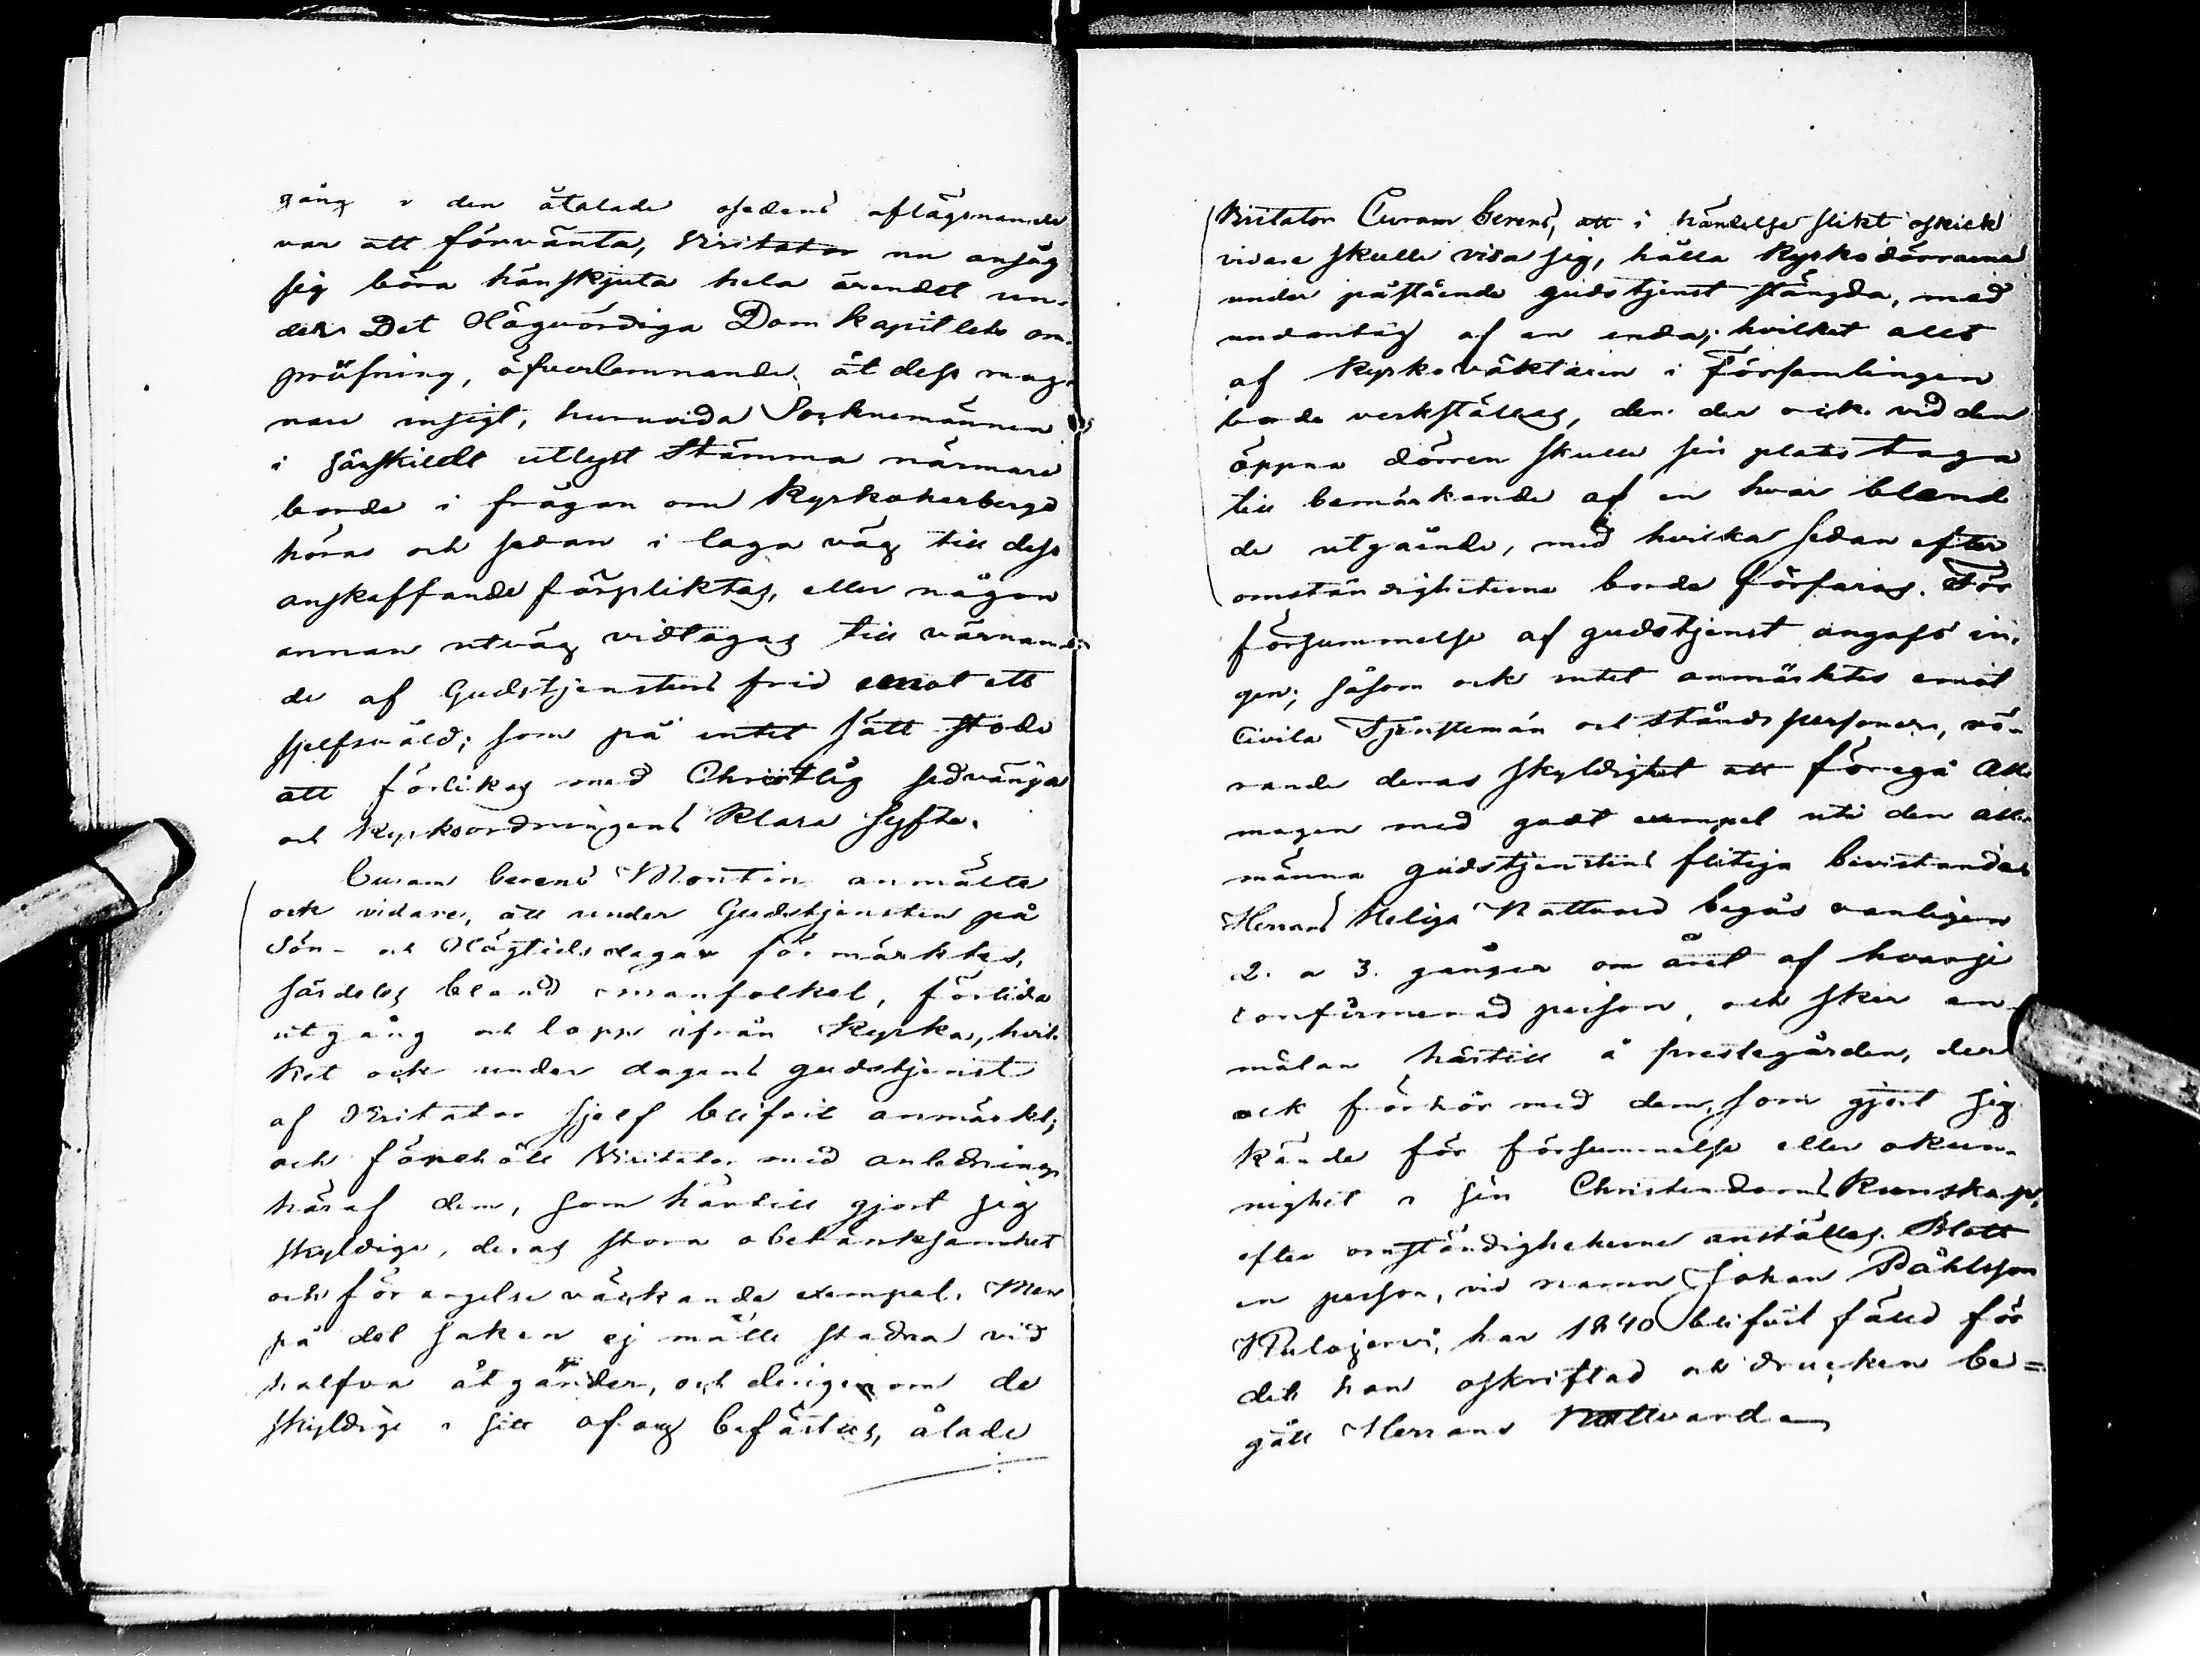 gång i den åtalade osedens aflägsnande
var att förvänta, Visitator nu ansåg
sig böra hänskjuta hela ärendet un-
der Det Högvördiga Domkapitlets om-
pröfning, öfverlemnande åt dess mog-
nare insigt, huruvida Socknemännen
i särskildt utlyst Stämma närmare
borde i frågan om Kyrkoherberge
höras och sedan i laga väg till dess
anskaffande förpliktas, eller någon
annan utväg vidtagas till värnan-
de af Gudstjenstens frid emot ett
sjelfsvåld; som på intet sätt stode
att förlikas med Christlig sedvänja
och Kyrkoordningens klara syfte.
Curam Gerens Montin anmälte
ock vidare, att under Gudstjensten på
Sön- och Högtidsdagar förmärktes,
särdeles bland manfolket, förtida
utgång och lopp ifrån Kyrka, hvil-
ket ock under dagens gudstjenst
af Visitator sjelf blifvit anmärkt;
och förehöll Visitator med anledning
häraf dem, som härtill gjort sig
skyldige, deras stora obetänksamhet
och förargelse väckande exempel. Men
på det saken ej måtte stadna vid
halfva åtgärder, och derigenom de
skyldige i sitt ofog befästas, ålade
Visitator Curam Gerens, att i händelse slikt oskick
vidare skulle visa sig, hålla Kyrkodörrarna
under påstående gudstjenst stängda, med
undantag af en enda; hvilket allt
af Kyrkoväktaren i Församlingen
borde verkställas, den der ock vid den
öppna dörren skulle sin plats taga
till bemärkande af en hvar bland
de utgående, med hvilka sedan efter
omständigheterna borde förfaras. För
försummelse af gudstjenst angafs in-
gen; såsom ock intet anmärktes emot
Civila Tjenstemän och Ståndspersoner, rö-
rande deras skyldighet att föregå All-
mogen med godt exempel uti den all-
männa gudstjenstens flitiga bevistande
Herrans Heliga Nattvard begås vanligen
2. a 3. gånger om året af hvarje
confirmerad person, och sker an-
mälan härtill å prestegården, der
ock förhör med dem, som gjort sig
kände för försummelse eller okun-
nighet i sin Christendoms Kunskap,
efter omständigheterne anställes. Blott
en person, vid namn Johan Påhlsson
Pulojervi, har 1840 blifvit fälld för
det han oskriftad och drucken be=
gått Herrans Nattvard